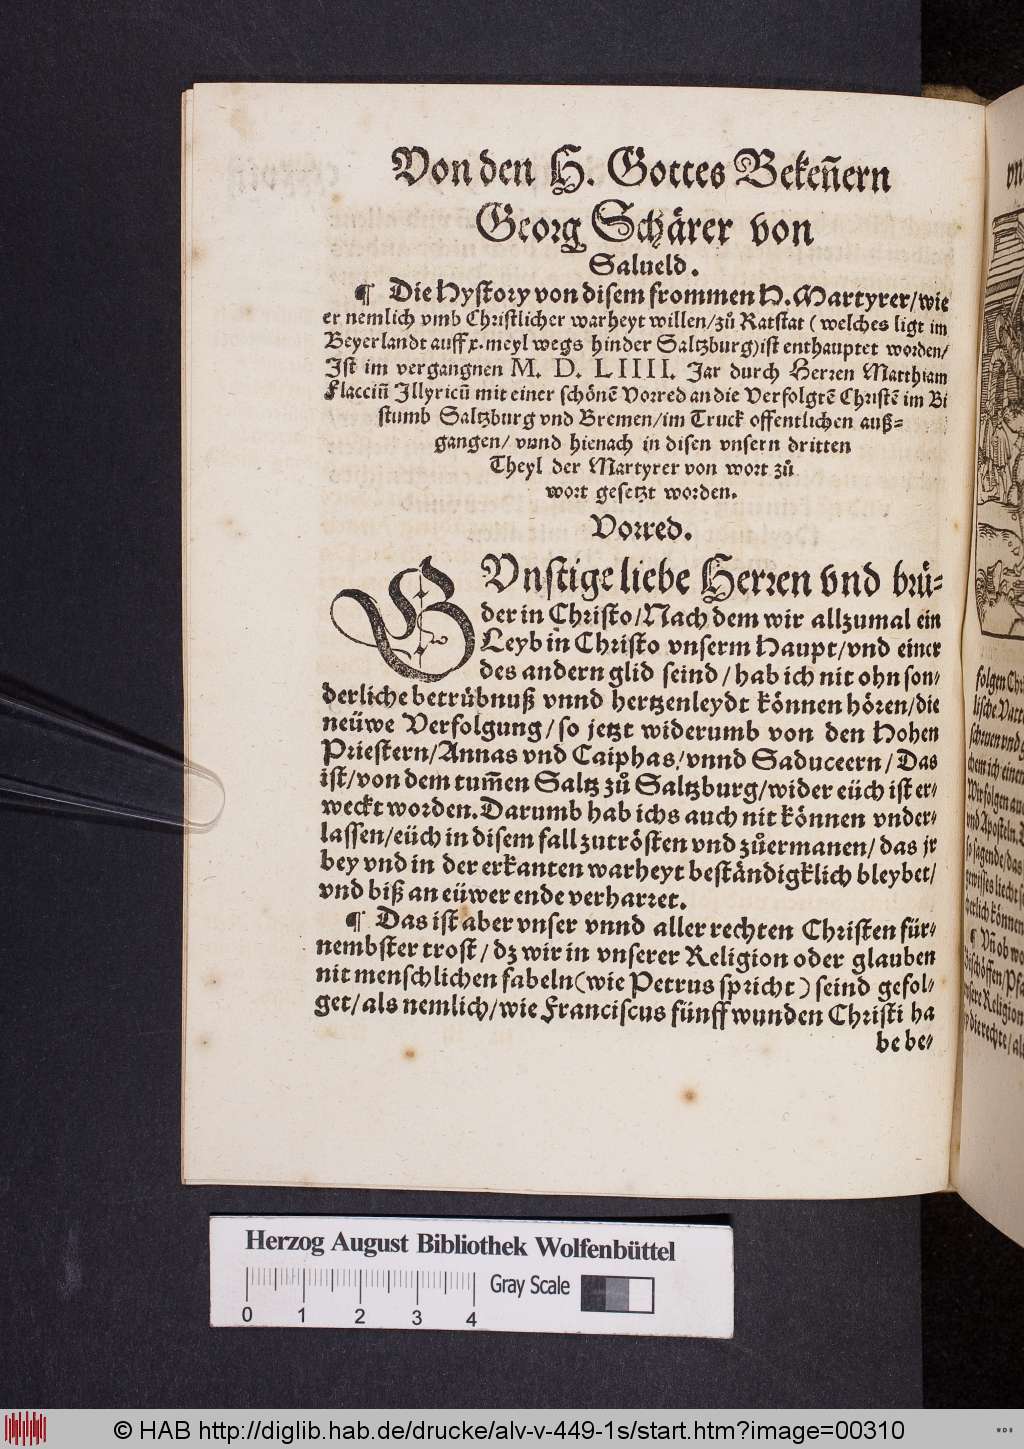 Von den H. Gottes Bekeñern
Georg Schärer von
Salueld.
¶ Die Hystory von disem frommen H. Martyrer/wie
er nemlich vmb Christlicher warheyt willen/zů Ratstat (welches ligt im
Beyerlandt auff x. meyl wegs hinder Saltzburg)ist enthauptet worden/
Ist im vergangnen M. D. LIIII. Jar durch Herren Matthiam
Flacciū Illyricū mit einer schönē Vorred an die Verfolgtē Christē im Bi
stumb Saltzburg vnd Bremen/im Truck offentlichen auß=
gangen/ vnnd hienach in disen vnsern dritten
Theyl der Martyrer von wort zů
wort gesetzt worden.
Vorred.
GVnstige liebe Herren vnd brü=
der in Christo/Nach dem wir allzumal ein
Leyb in Christo vnserm Haupt/vnd einer
des andern glid seind/hab ich nit ohn son=
derliche betrübnuß vnnd hertzenleydt können hören/die
neüwe Verfolgung/so jetzt widerumb von den Hohen
Priestern/Annas vnd Caiphas/vnnd Saduceern/Das
ist/von dem tum̃en Saltz zů Saltzburg/wider eüch ist er=
weckt worden. Darumb hab ichs auch nit können vnder=
lassen/eüch in disem fall zutrösten vnd zůermanen/das jr
bey vnd in der erkanten warheyt beständigklich bleybet/
vnd biß an eüwer ende verharret.
¶ Das ist aber vnser vnnd aller rechten Christen für=
nembster trost/dz wir in vnserer Religion oder glauben
nit menschlichen fabeln(wie Petrus spricht)seind gefol=
get/als nemlich/wie Franciscus fünff wunden Christi ha
be be=
folgen Chri
lische Vatt
schewen vnd
chem ich einen
Wir folgen auch
vnd Aposteln.
so sagende/das
gewisses liecht
gerlich können
¶ Vñ ob wo
Bischöffen/Pfa
vnsere Religion
die rechte/al
Herzog August Bibliothek Wolfenbüttel
Gray Scale
0 1 2 3 4
© HAB http://diglib.hab.de/drucke/alv-v-449-1s/start.htm?image=00310